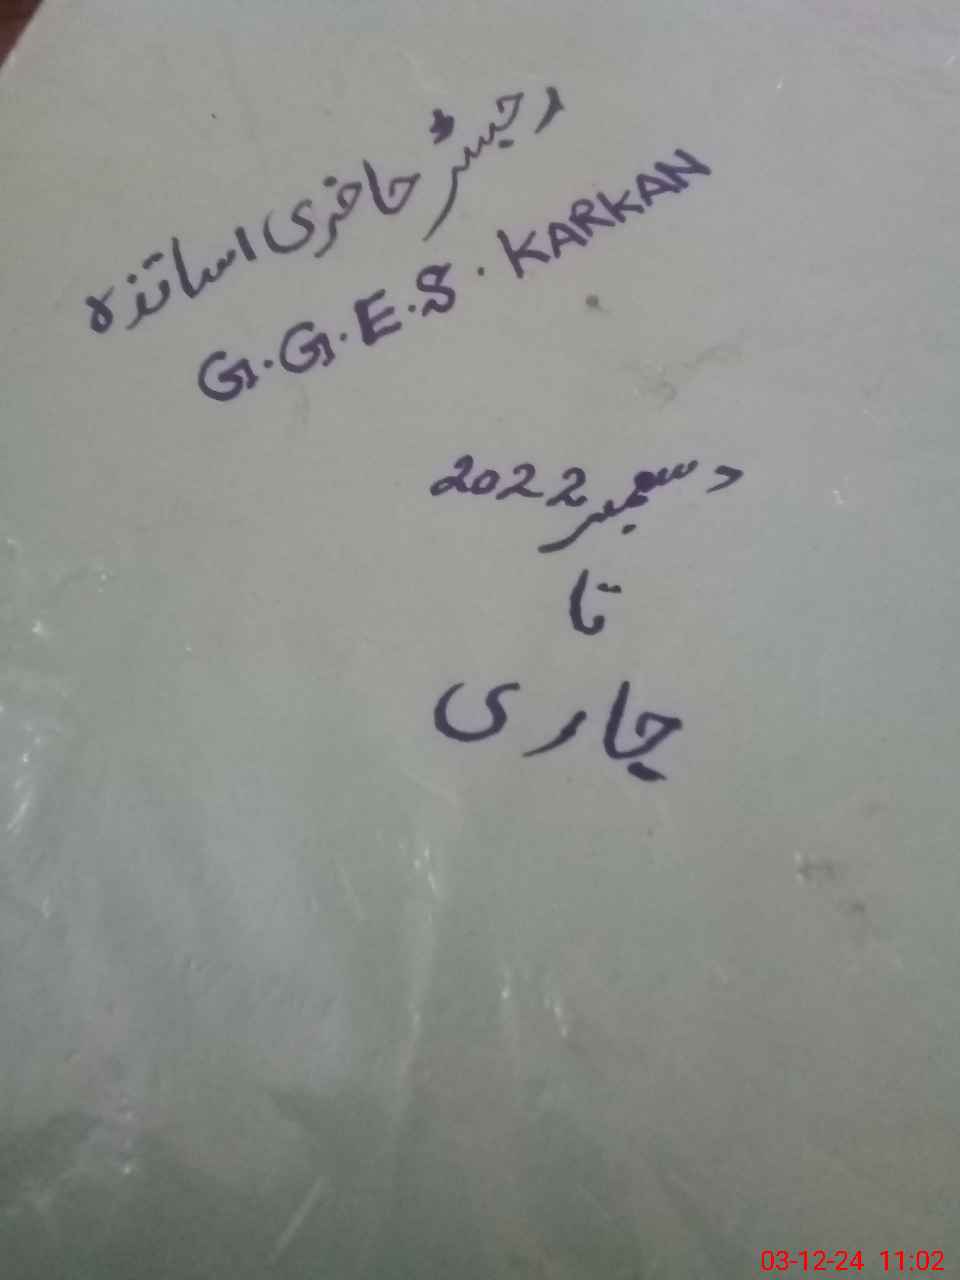 رجسٹر حاضری اساتذہ
G.G.E.S. KARKAN
دسمبر 2022
تا
جاری
03-12-24 11:02